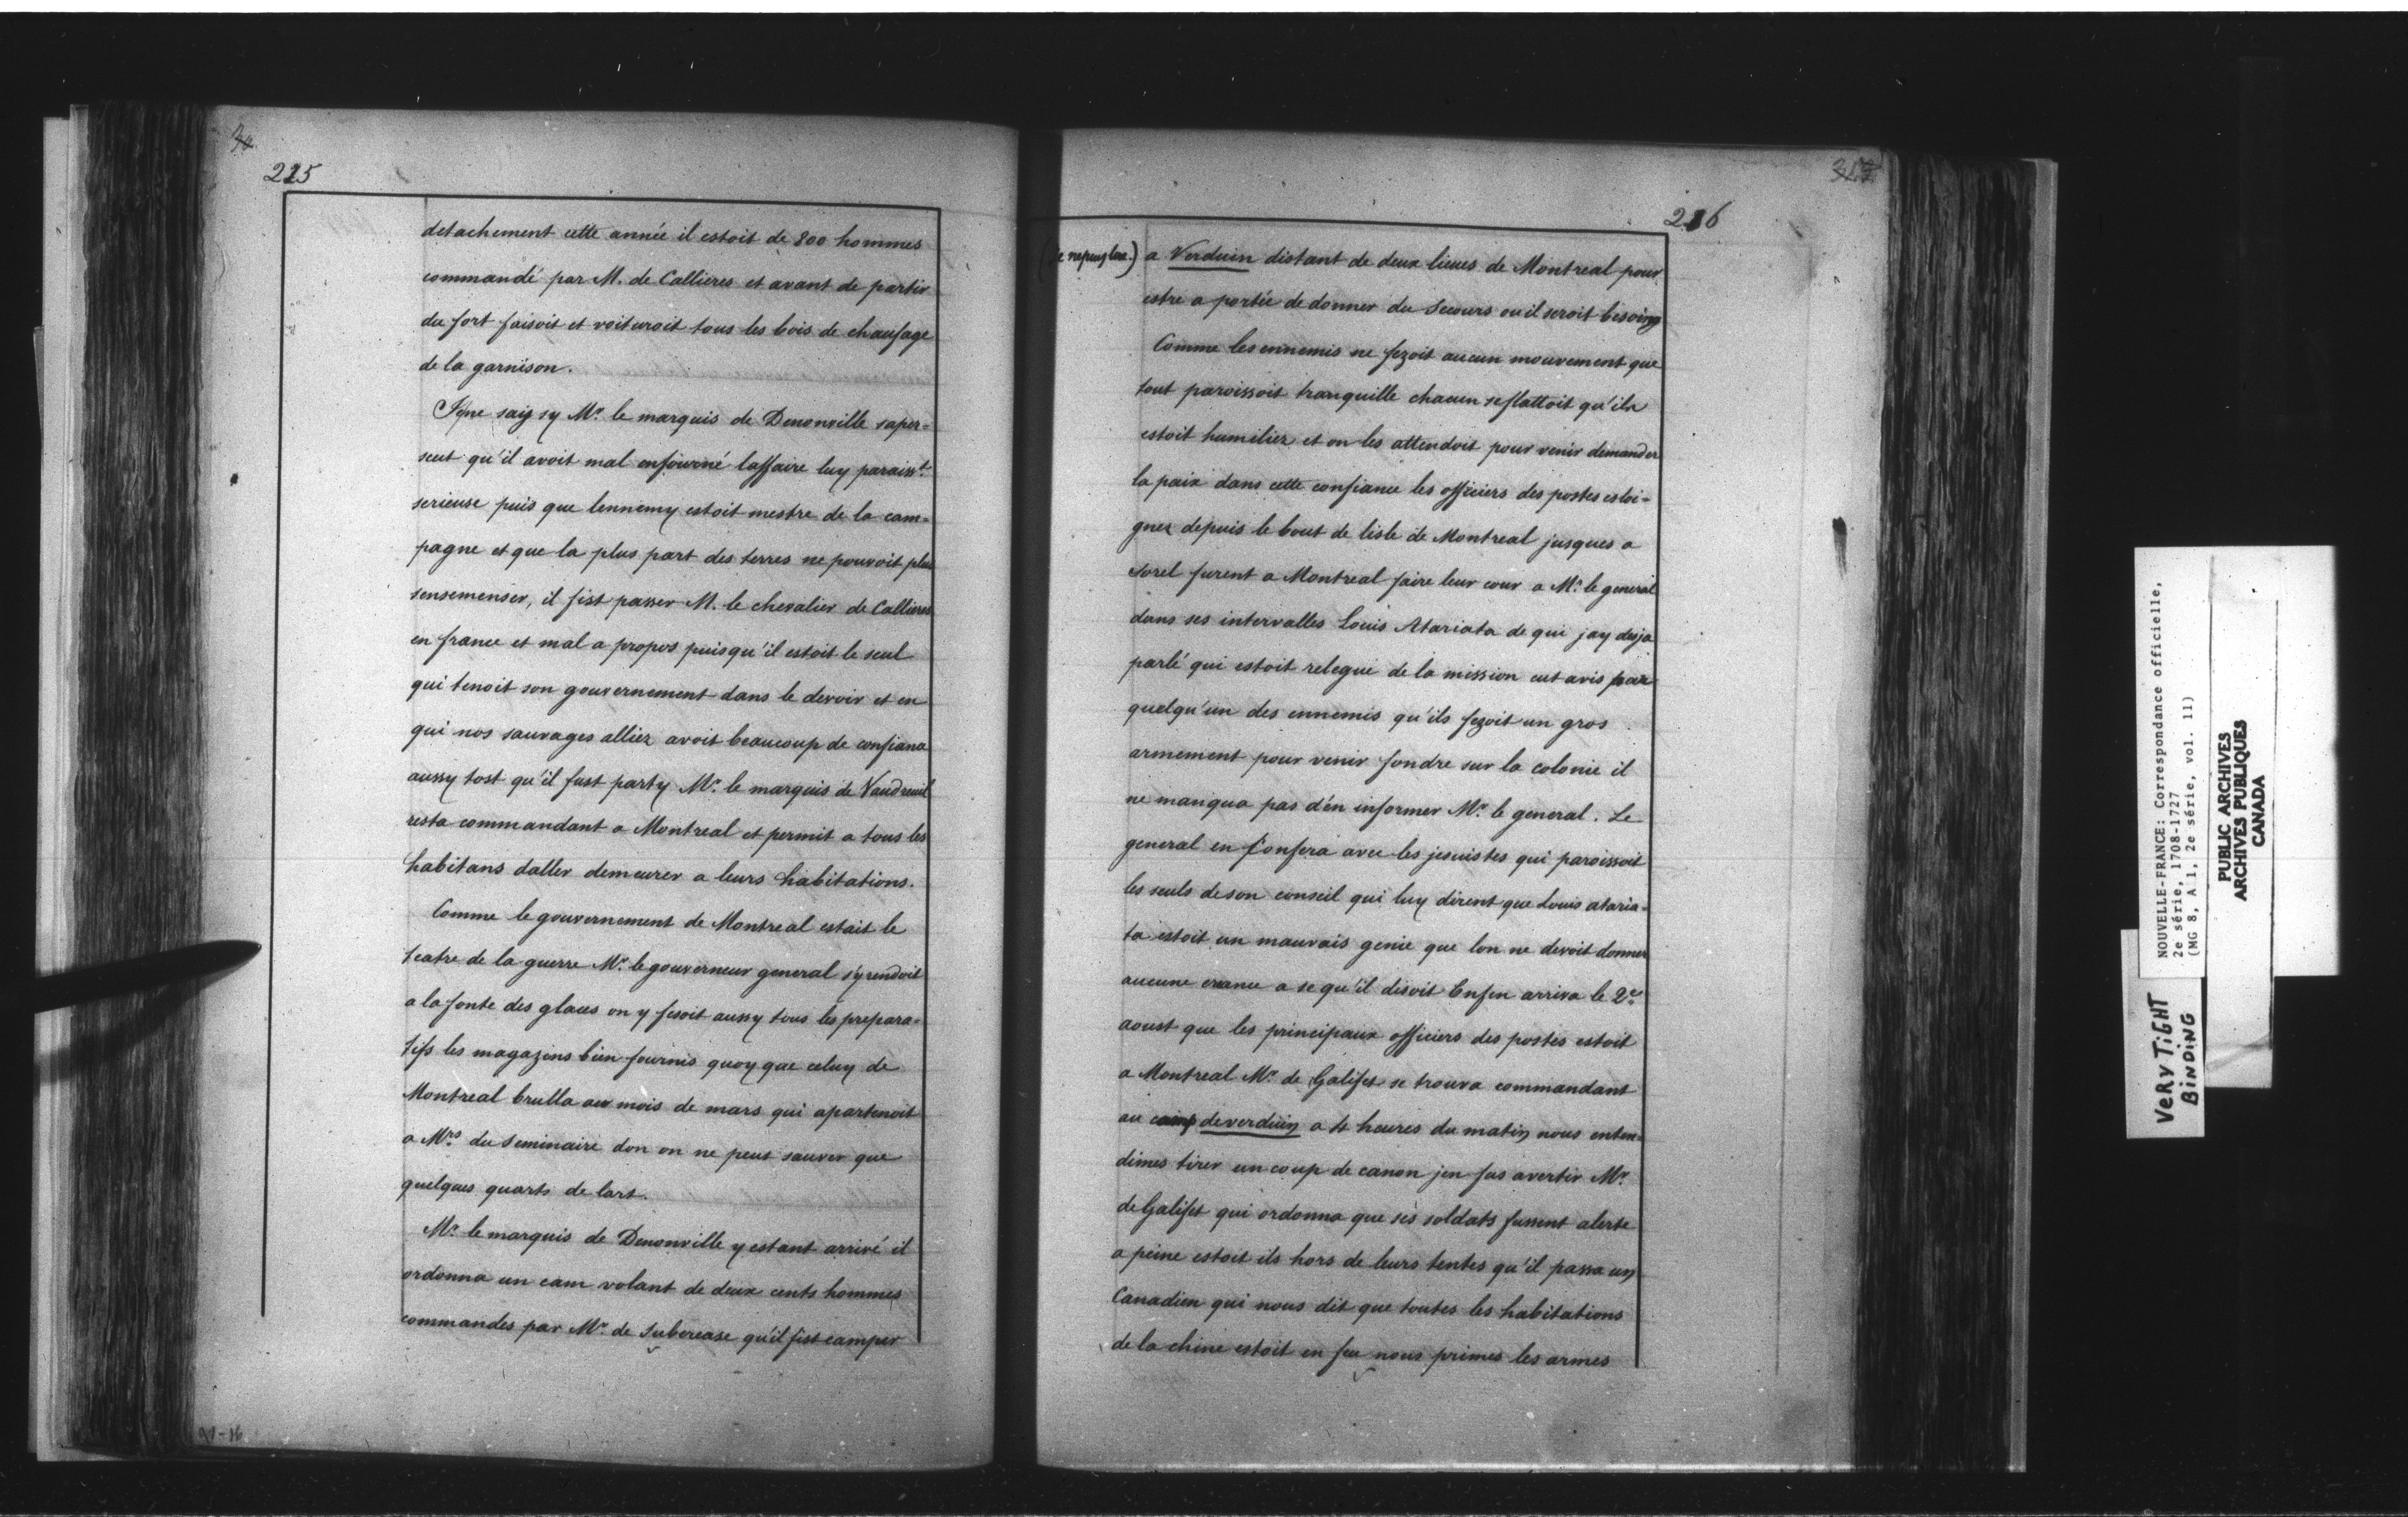 225
detachement cette année il estoit de 800 hommes
commandé par M. de Callieres et avant de partir
du fort faisoit et voituroit tous les bois de chaufage
de la garnison.
Je ne sais sy Mr. le marquis de Denonville saper-
seut qu'il avoit mal enfourné laffaire luy paraisst.
serieuse puis que lennemy estoit mestre de la cam-
pagne et que la plus part des terres ne pouvoit plus
sensemenser, il fist passer M. le chevalier de Callieres
en france et mal a propos puisqu'il estoit le seul
qui tenoit son gouvernement dans le devoir et en
qui nos sauvages alliez avoit beaucoup de confiance
aussy tost qu'il fust party Mr. le marquis de Vaudreuil
resta commandant a Montreal et permit a tous les
habitans daller demeurer a leurs habitations.
Comme le gouvernement de Montreal estait le
teatre de la guerre Mr. le gouverneur general s'y rendoit
a la fonte des glaces on y fesoit aussy tous les prepara-
tifs les magazins bien fournis quoy que celuy de
Montreal brulla au mois de mars qui apartenoit
a Mrs. du Seminaire don on ne peut sauver que
quelques quarts de lart.
Mr. le marquis de Denonville y estant arrivé il
ordonna un cam volant de deux cents hommes
commandes par Mr. de Subercase qu'il fist camper
21-16
216
a Verduin distant de deux lieues de Montreal pour
estre a portée de donner du Secours ou il seroit besoing
Comme les ennemis ne fezoit aucun mouvement que
tout paroissoit tranquille chacun se flattoit qu'ils
estoit humiliez et on les attendoit pour venir demander
la paix dans cette confiance les officiers des postes esloi-
gnez depuis le bout de lisle de Montreal jusques a
Sorel furent a Montreal faire leur cour a Mr. le general
dans ses intervalles Louis Atariata de qui jay desja
parlé qui estoit relegué de la mission eut avis par
quelqu'un des ennemis qu'ils fezoit un gros
armement pour venir fondre sur la colonie il
ne manqua pas d'en informer Mr. le general. Le
general en confera avec les jesuistes qui paroissoit
les seuls de son conseil qui luy dirent que Louis ataria-
ta estoit un mauvais genie que lon ne devoit donner
aucune creance a se qu'il disoit Enfin arriva le 2e.
aoust que les principaux officiers des postes estoit
a Montreal Mr. de Galifet se trouva commandant
au camp de verduin a 4 heures du matin nous enten-
dimes tirer un coup de canon jen fus avertir Mr.
de Galifet qui ordonna que ses soldats fussent alerte
a peine estoit ils hors de leurs tentes qu'il passa un
Canadien qui nous dit que toutes les habitations
de la chine estoit en feu nous primes les armes
NOUVELLE-FRANCE: Correspondance officielle,
2e série, 1708-1727
(MG 8, A 1, 2e série, vol. 11)
PUBLIC ARCHIVES
ARCHIVES PUBLIQUES
CANADA
VERY TIGHT
BINDING